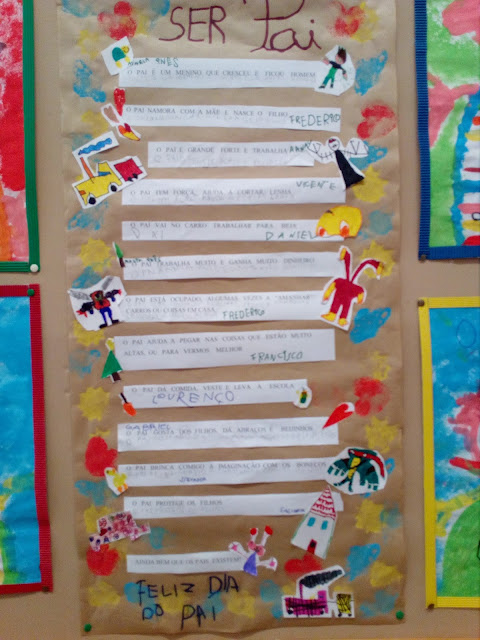 SER Pai
O PAI É UM MENINO QUE CRESCEU E FICOU HOMEM
O PAI NAMORA COM A MÃE E NASCE O FILHO
FREDERICO
O PAI É GRANDE FORTE E TRABALHA
O PAI TEM FORÇA, AJUDA A CORTAR LENHA
VICENTE
O PAI VAI NO CARRO TRABALHAR PARA BEJA
DANIEL
O PAI TRABALHA MUITO E GANHA MUITO DINHEIRO
O PAI ESTÁ OCUPADO, ALGUMAS VEZES A
CARROS OU COISAS EM CASA
FREDERICO
O PAI AJUDA A PEGAR NAS COISAS QUE ESTÃO MUITO
ALTAS, OU PARA VERMOS MELHOR
FRANCISCO
O PAI DÁ COMIDA, VESTE E LEVA À ESCOLA
LOURENÇO
GABRIEL
O PAI GOSTA DOS FILHOS, DÁ ABRAÇOS E BEIJINHOS
O PAI BRINCA COMIGO À IMAGINAÇÃO COM OS BONECOS
O PAI PROTEGE OS FILHOS
AINDA BEM QUE OS PAIS EXISTEM!
FELIZ DIA
DO PAI